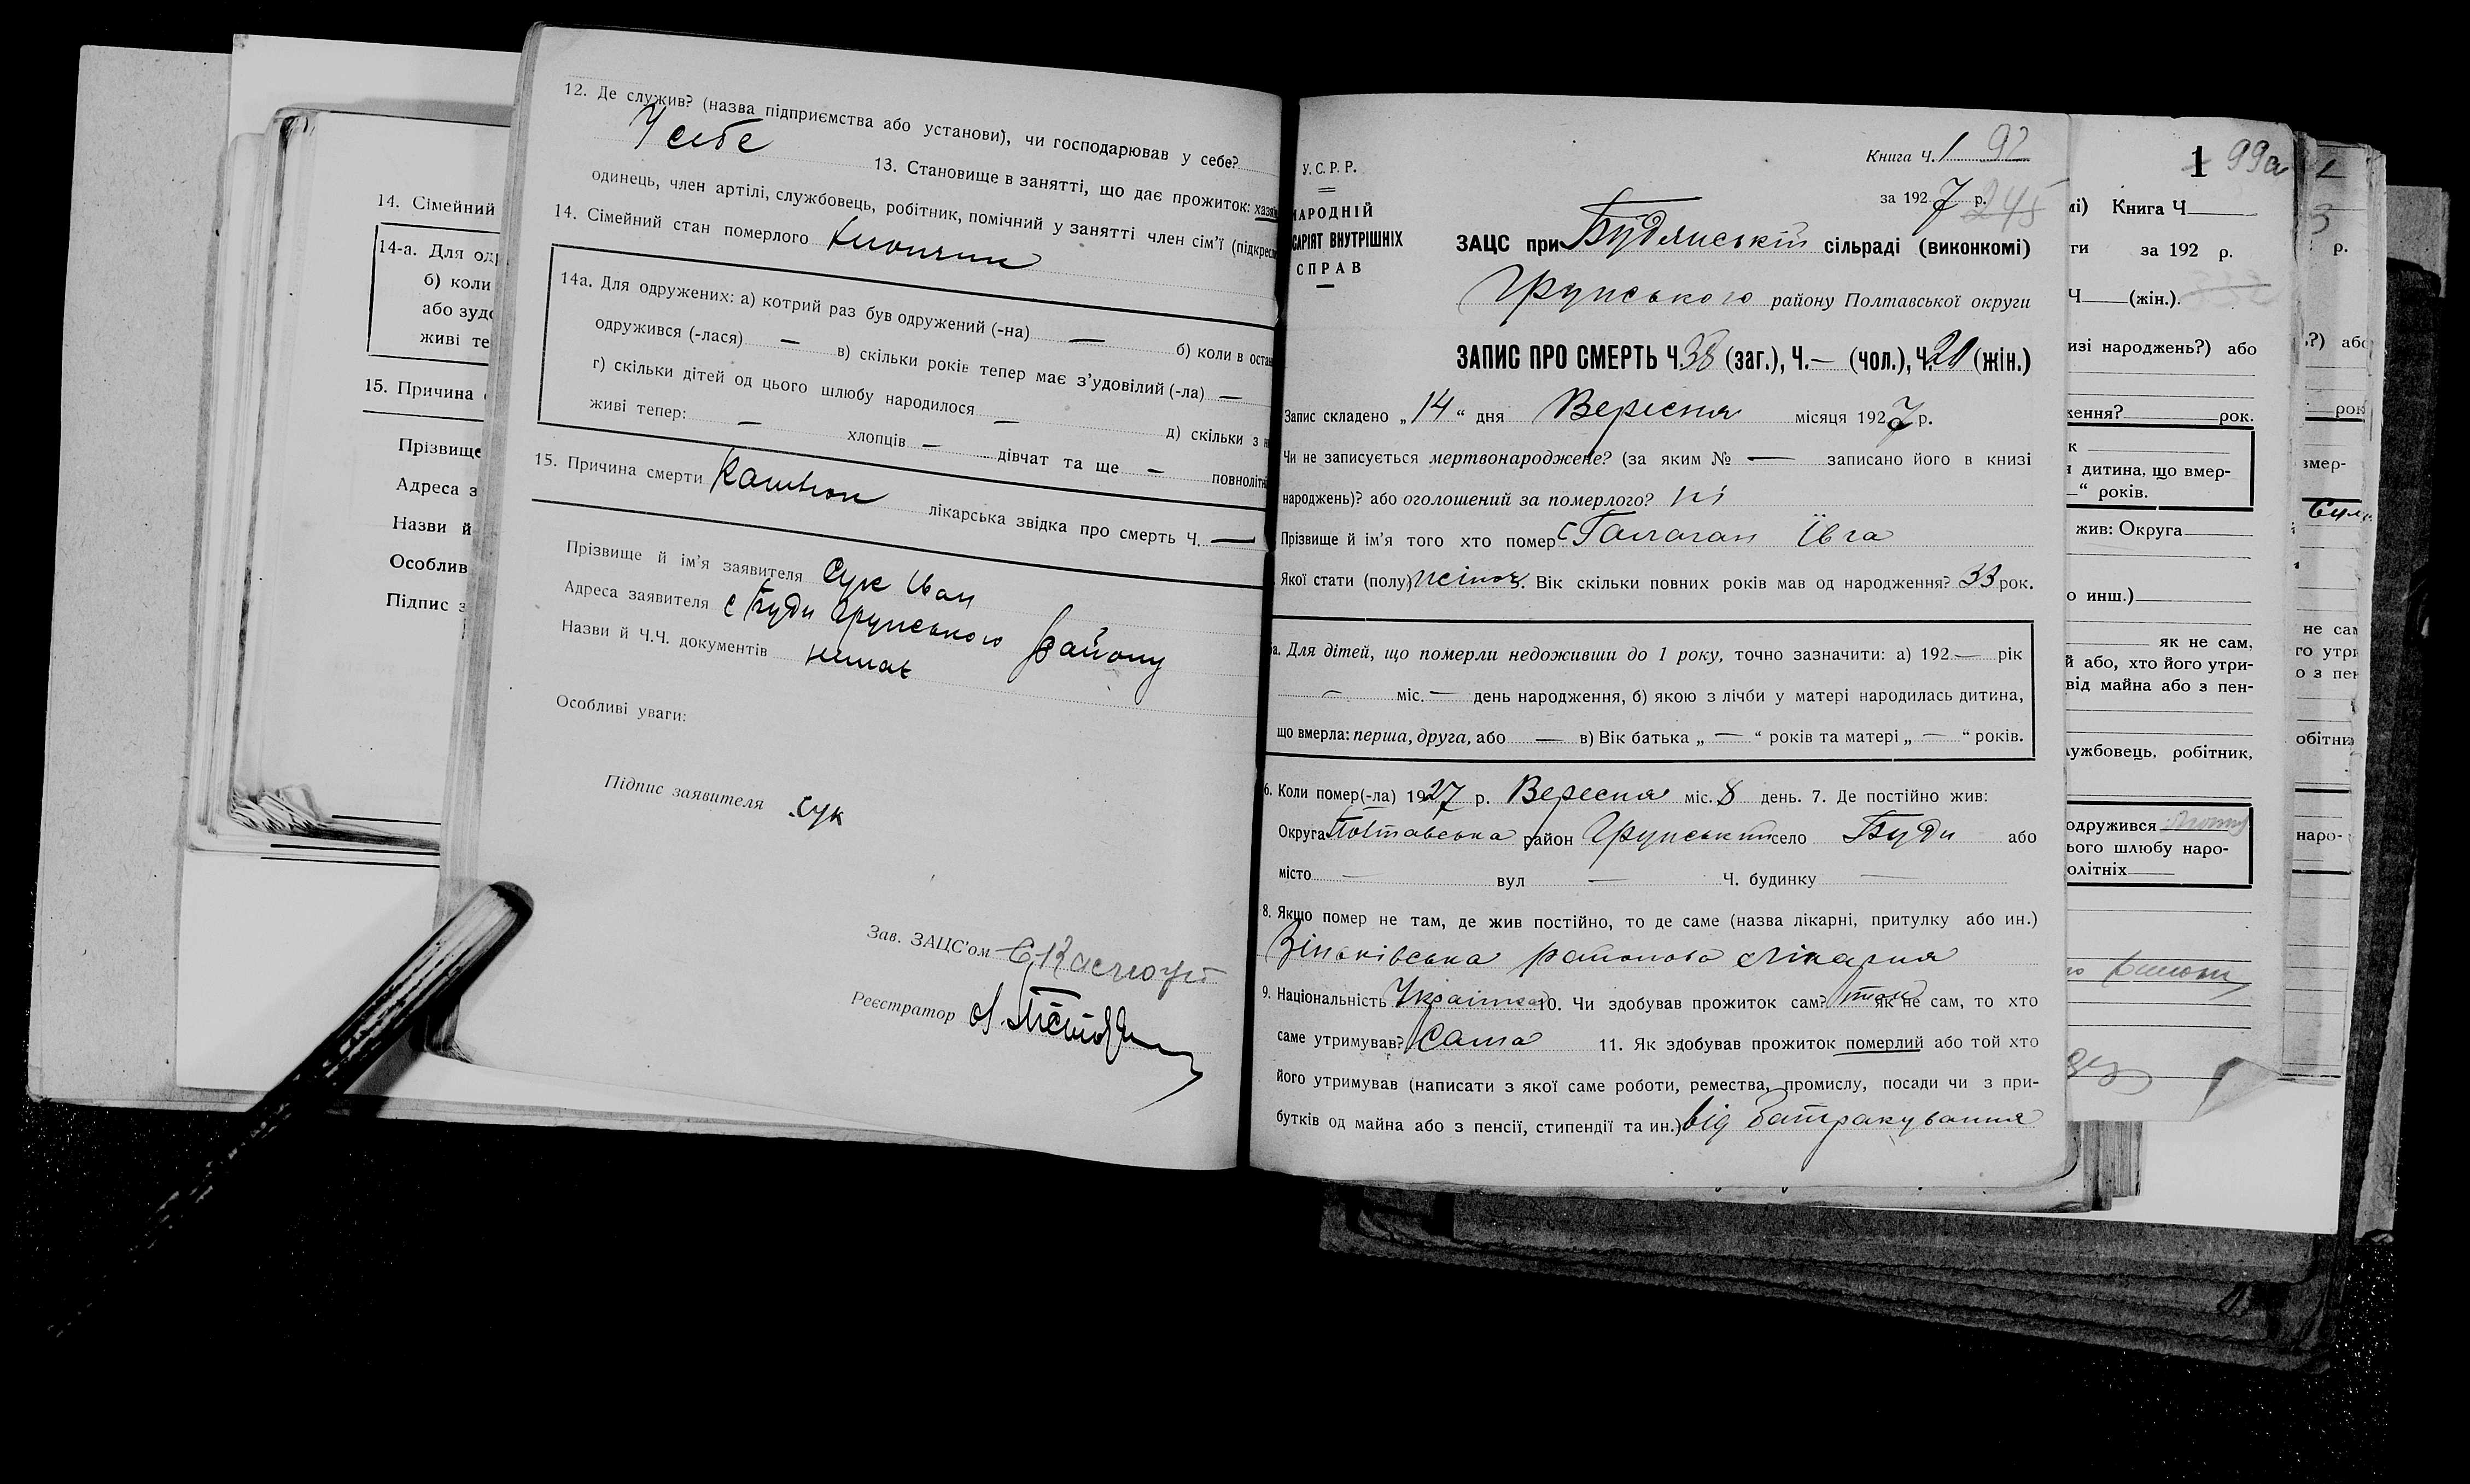 12. Де служив? (назва підприємства або установи), чи господарював у себе?
У себе 13. Становище в занятті, що дає прожиток: хазяїн
одинець, член артілі, службовець, робітник, помічний у занятті член сім'ї (підкресл
14. Сімейний стан померлого хлопчик
14а. Для одружених: а) котрий раз був одружений (-на) — б) коли в остан
одружився (-лася) — в) скільки років тепер має з'удовілий (-ла) —
г) скільки дітей од цього шлюбу народилося — д) скільки з н
живі тепер: — хлопців — дівчат та ще — повноліт
15. Причина смерти Кашлюк лікарська звідка про смерть Ч. —
Прізвище й ім'я заявителя Сук Іван
Адреса заявителя с Буди Грунського району
Назви й Ч.Ч. документів немає
Особливі уваги:
Підпис заявителя Сук
Зав. ЗАЦС'ом
Реєстратор
14. Сімейний
14-а. Для од
б) коли
або зудо
живі те
15. Причина
Прізвище
Адреса з
Назви й
Особлив
Підпис з
Книга Ч. 1 92
У.С.Р.Р.
за 1927 р. 245
НАРОДНІЙ
САРІЯТ ВНУТРІШНІХ
СПРАВ
ЗАЦС при Будянській сільраді (виконкомі)
Грунського району Полтавської округи
ЗАПИС ПРО СМЕРТЬ Ч. 38 (заг.), Ч. — (чол.), Ч. 20 (жін.)
Запис складено „14“ дня Вересня місяця 1927 р.
Чи не записується мертвонароджене? (за яким № — записано його в книзі
народжень)? або оголошений за померлого? ні
Прізвище й ім'я того хто помер Галаган Івга
Якої статі (полу) жіноч. Вік скільки повних років мав од народження? 33 рок.
а. Для дітей, що померли недоживши до 1 року, точно зазначити: а) 192 — рік
— міс. — день народження, б) якою з лічби у матері народилась дитина,
що вмерла: перша, друга, або — в) Вік батька „ — “ років та матері „ — “ років.
6. Коли помер(-ла) 1927 р. Вересня міс. 8 день. 7. Де постійно жив:
Округа Полтавська район Грунський село Буди або
місто — вул — Ч. будинку —
8. Якщо помер не там, де жив постійно, то де саме (назва лікарні, притулку або ин.)
Зіньківська районова лікарня
9. Національність Українка 10. Чи здобував прожиток сам? так як не сам, то хто
саме утримував? Сама 11. Як здобував прожиток померлий або той хто
його утримував (написати з якої саме роботи, ремества, промислу, посади чи з при-
бутків од майна або з пенсії, стипендії та ин.) від батракування
1 99а
мі) Книга Ч
ги за 192 р.
Ч (жін.).
изі народжень?) або
ження? рок.
к
дитина, що вмер-
“ років.
жив: Округа
о инш.)
як не сам,
й або, хто його утри-
від майна або з пен-
лужбовець, робітник,
одружився
ього шлюбу наро-
олітніх
3
р.
?) або
рок
вмер-
не сам
го утри
о з пен
обітни
наро-